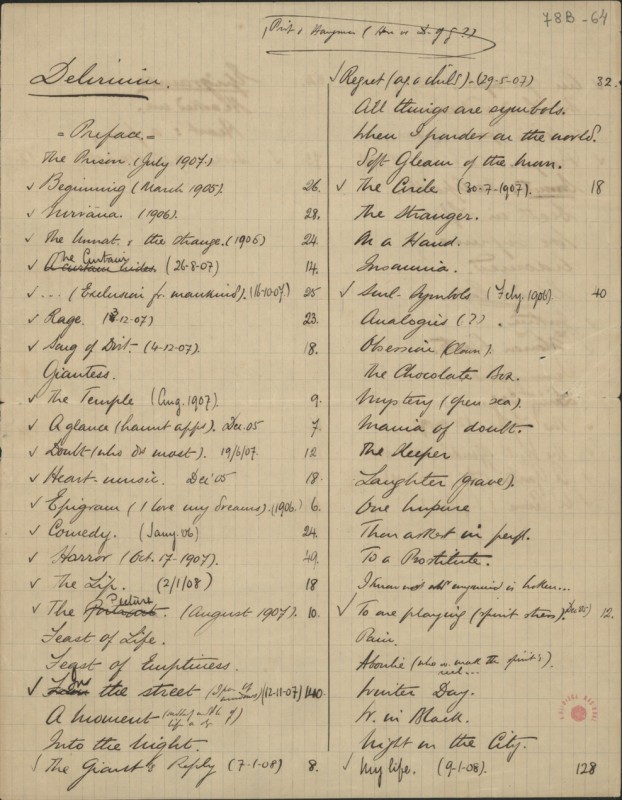 78B-64
Delirium.
= Preface =
The Prison. (July 1907)
✓ Beginning (March 1905). 26.
✓ Nirvāna. (1906). 28.
✓ The Unnat. & the strange. (1906) 24.
✓ The Curtain (26-8-07) 14.
✓ ... (Exclusion fr. mankind). (16-10-07) 25
✓ Rage. 12-07) 23.
✓ Song of Dirt. (4-12-07). 18.
Giantess.
✓ The Temple (Aug. 1907). 9.
✓ A glance (haunt apps). Dec. 05 7.
✓ Doubt (who most). 19/6/07. 12
✓ Heart-music. Dec. 05 18.
✓ Epigram (I love my dreams). (1906) 6.
✓ Comedy. (Jany. 06) 24.
✓ Horror (Oct. 17-1907). 49.
✓ The Lip. (2/1/08) 18
✓ The Picture. (August 1907). 10.
Feast of Life.
Feast of Emptiness.
✓ the street (12-11-07)
A moment
Into the Night.
✓ The Giant's Reply (7-1-08) 8.
✓ Regret (as a child) - (29-5-07) 32.
All things are symbols.
When I ponder on the world.
Soft Gleam of the
✓ The Circle (30-7-1907). 18
The Stranger.
In a Hand.
Insomnia.
✓ Soul-Symbols (Feby. 1906) 40
Analogies (?).
Obsession (Clown).
The Chocolate Box.
Mystery (open sea).
Mania of doubt.
The Sleeper
Laughter (grave).
One Impure
Thou asket in perf.
To a Prostitute.
✓ To one playing (spirit stress). 12.
Pain.
Aboulie
Winter Day.
in Black.
Night in the City.
✓ My life. (9-1-08). 128